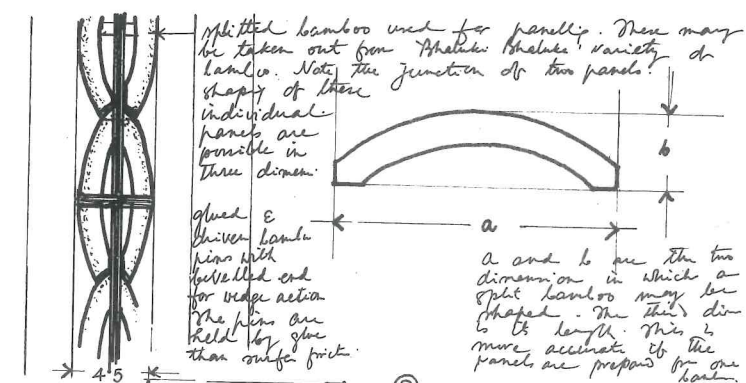 splitted bamboo used for panellig. These may
be taken out from 'Bhaluki Bhaluka' variety of
bamboo. Note the junction of two panels.
shape of these
individual
panels are
possible in
three dimen.
b
a
glued &
driven bambu
pins with
bevelled end
for wedge action
The pins are
held by glue
than surfce frictn.
a and b are the two
dimension in which a
split bamboo may be
shaped. The third dim
is its length. This is
more accurate if the
panels are prepard for one
45